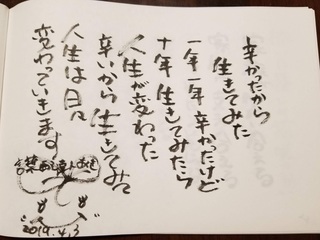 辛かったから
生きてみた
一年一年辛かったけど
十年生きてみたら
人生が変わった
辛いから生きてみて
人生は日々
変わっていきます
2019.4.3